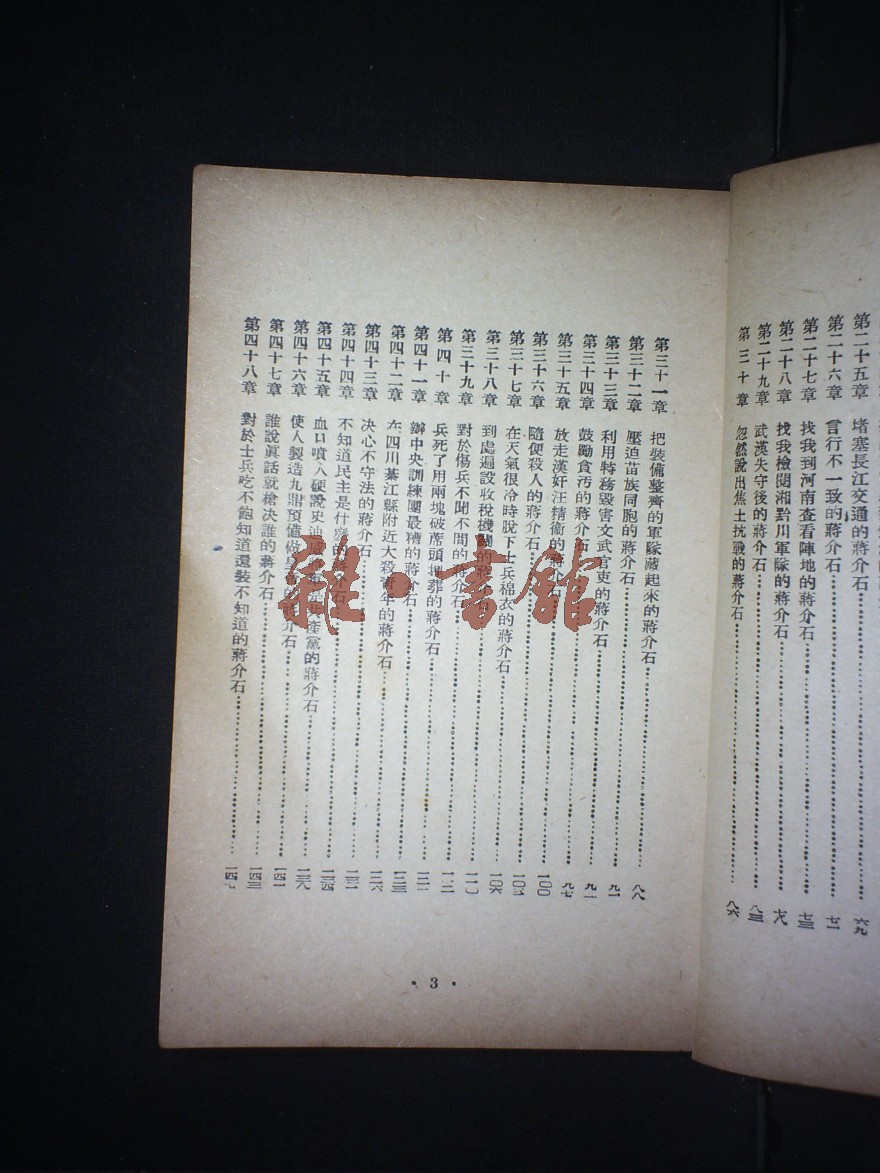 第二十五章 堵塞長江交通的蔣介石 六九
第二十六章 言行不一致的蔣介石 七一
第二十七章 找我到河南查看陣地的蔣介石 七三
第二十八章 找我檢閱湘黔川軍隊的蔣介石 七八
第二十九章 武漢失守後的蔣介石 八三
第三十章 忽然說出焦土抗戰的蔣介石 八六
第三十一章 把裝備整齊的軍隊藏起來的蔣介石 八八
第三十二章 壓迫苗族同胞的蔣介石 九一
第三十三章 利用特務毀害文武官吏的蔣介石
第三十四章 鼓勵貪汚的蔣介石
第三十五章 放走漢奸汪精衛的蔣介石 九七
第三十六章 隨便殺人的蔣介石 一〇〇
第三十七章 在天氣很冷時說下士兵棉衣的蔣介石
第三十八章 到處遍設收稅機關的蔣介石 一〇六
第三十九章 對於傷兵不聞不問的蔣介石 一一〇
第四十章 兵死了用兩塊破蓆頭埋葬的蔣介石 一一二
第四十一章 辦中央訓練團最糟的蔣介石
第四十二章 在四川綦江縣附近大殺青年的蔣介石
第四十三章 决心不守法的蔣介石
第四十四章 不知道民主是什麽的蔣介石
第四十五章 血口噴人硬說史迪威 共產黨的蔣介石
第四十六章 使人製造九鼎預備做皇帝的蔣介石
第四十七章 誰說眞話就槍决誰的蔣介石
第四十八章 對於士兵吃不飽知道還裝不知道的蔣介石 一四七
• 3 •
雜·書館